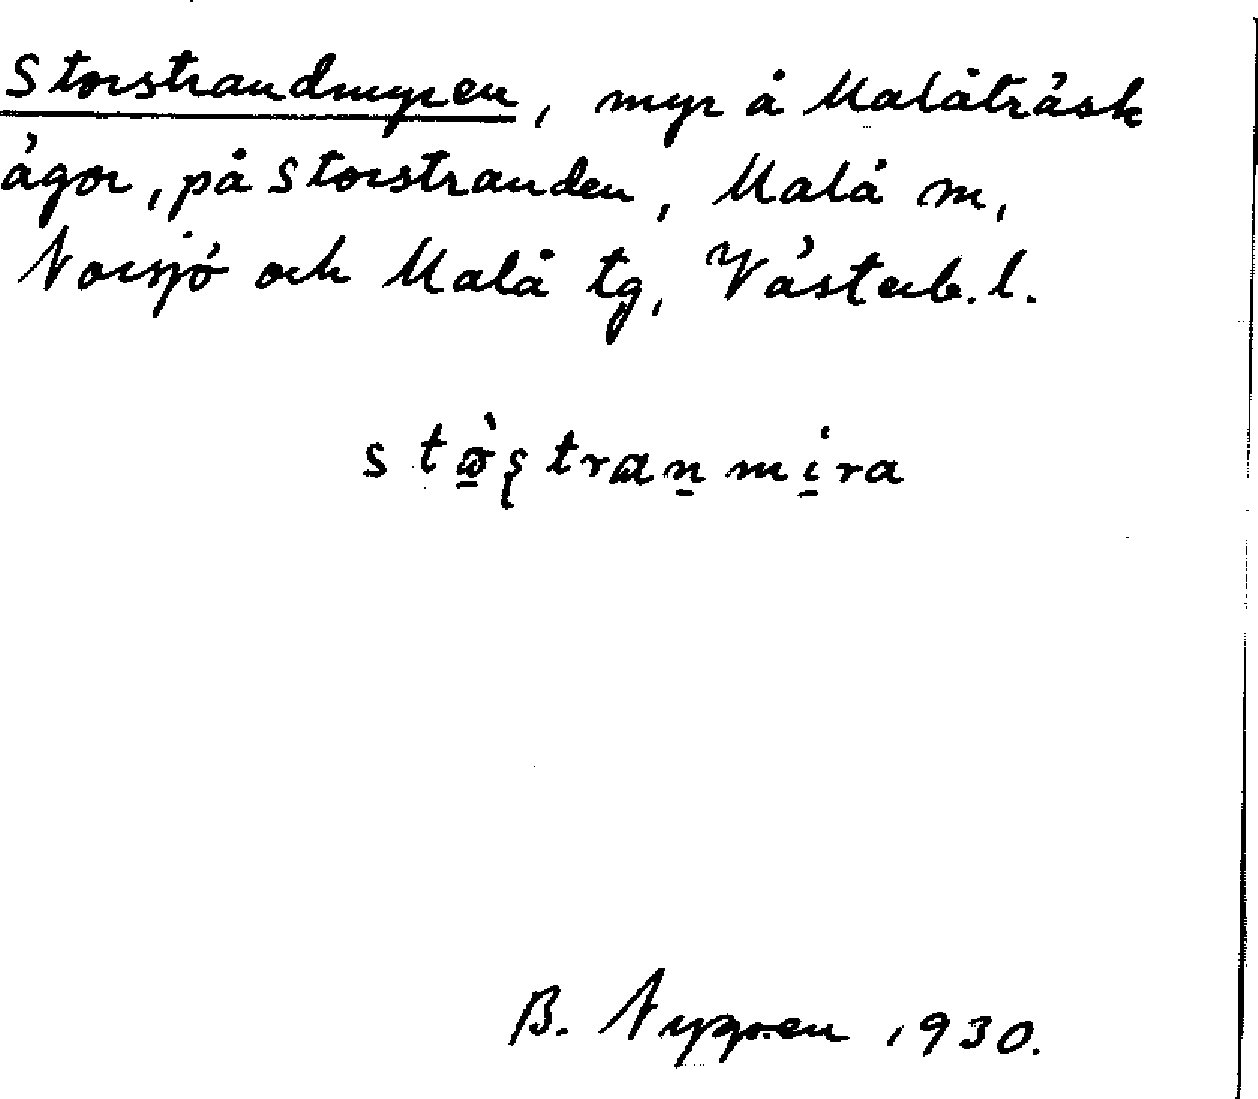 Storstrandmyren, myr å Malåträsk
ägor, på Storstranden, Malå sn,
Norsjö och Malå tg, Västerb. l.
B. Nygren 1930.